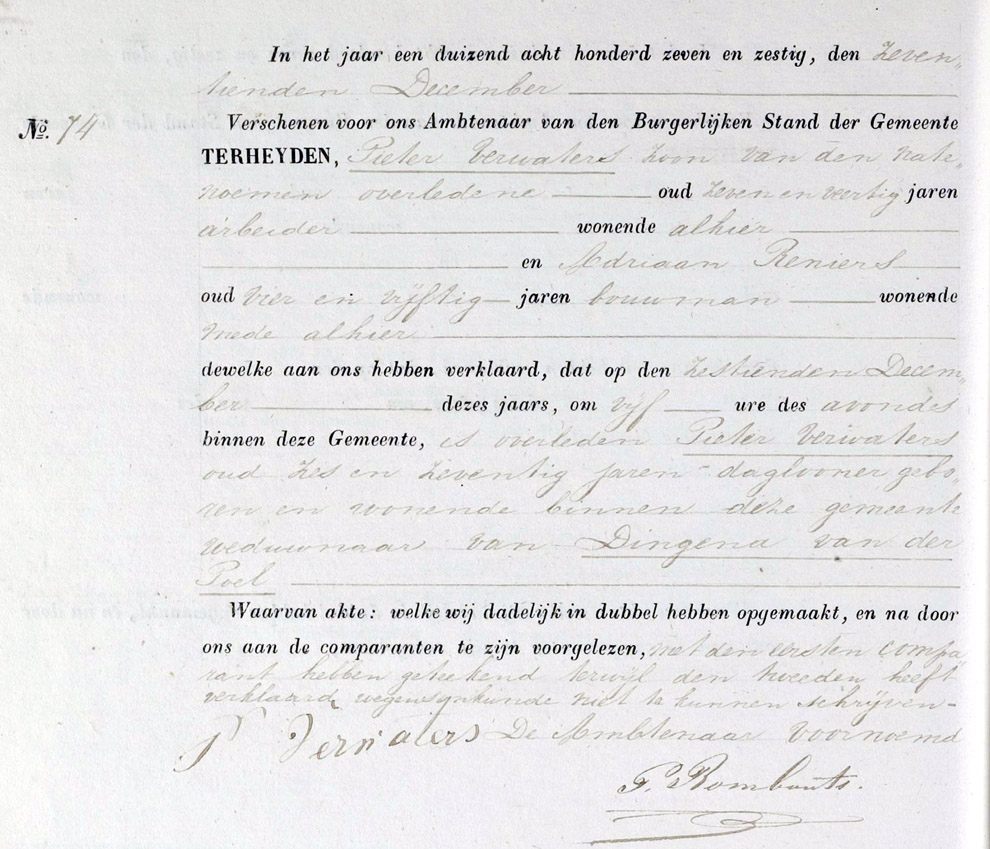 In het jaar een duizend acht honderd zeven en zestig, den zeven„
tienden December
No. 74 Verschenen voor ons Ambtenaar van den Burgerlijken Stand der Gemeente
TERHEYDEN, Pieter Verwaters zoon van den nate„
noemen overledene oud zeven en veertig jaren
arbeider wonende alhier
en Adriaan Reniers
oud vier en vijftig jaren bouwman wonende
mede alhier
dewelke aan ons hebben verklaard, dat op den zestienden Decem„
ber dezes jaars, om vijf ure des avonds
binnen deze Gemeente, is overleden Pieter Verwaters
oud zes en zeventig jaren daglooner gebo„
ren en wonende binnen deze gemeente
weduwnaar van Dingena van der
Poel
Waarvan akte: welke wij dadelijk in dubbel hebben opgemaakt, en na door
ons aan de comparanten te zijn voorgelezen, met den eersten compa
rant hebben geteekend terwijl den tweeden heeft
verklaard wegens onkunde niet te kunnen schrijven-
P Verwaters De Ambtenaar voornoemd
P. Rombouts.